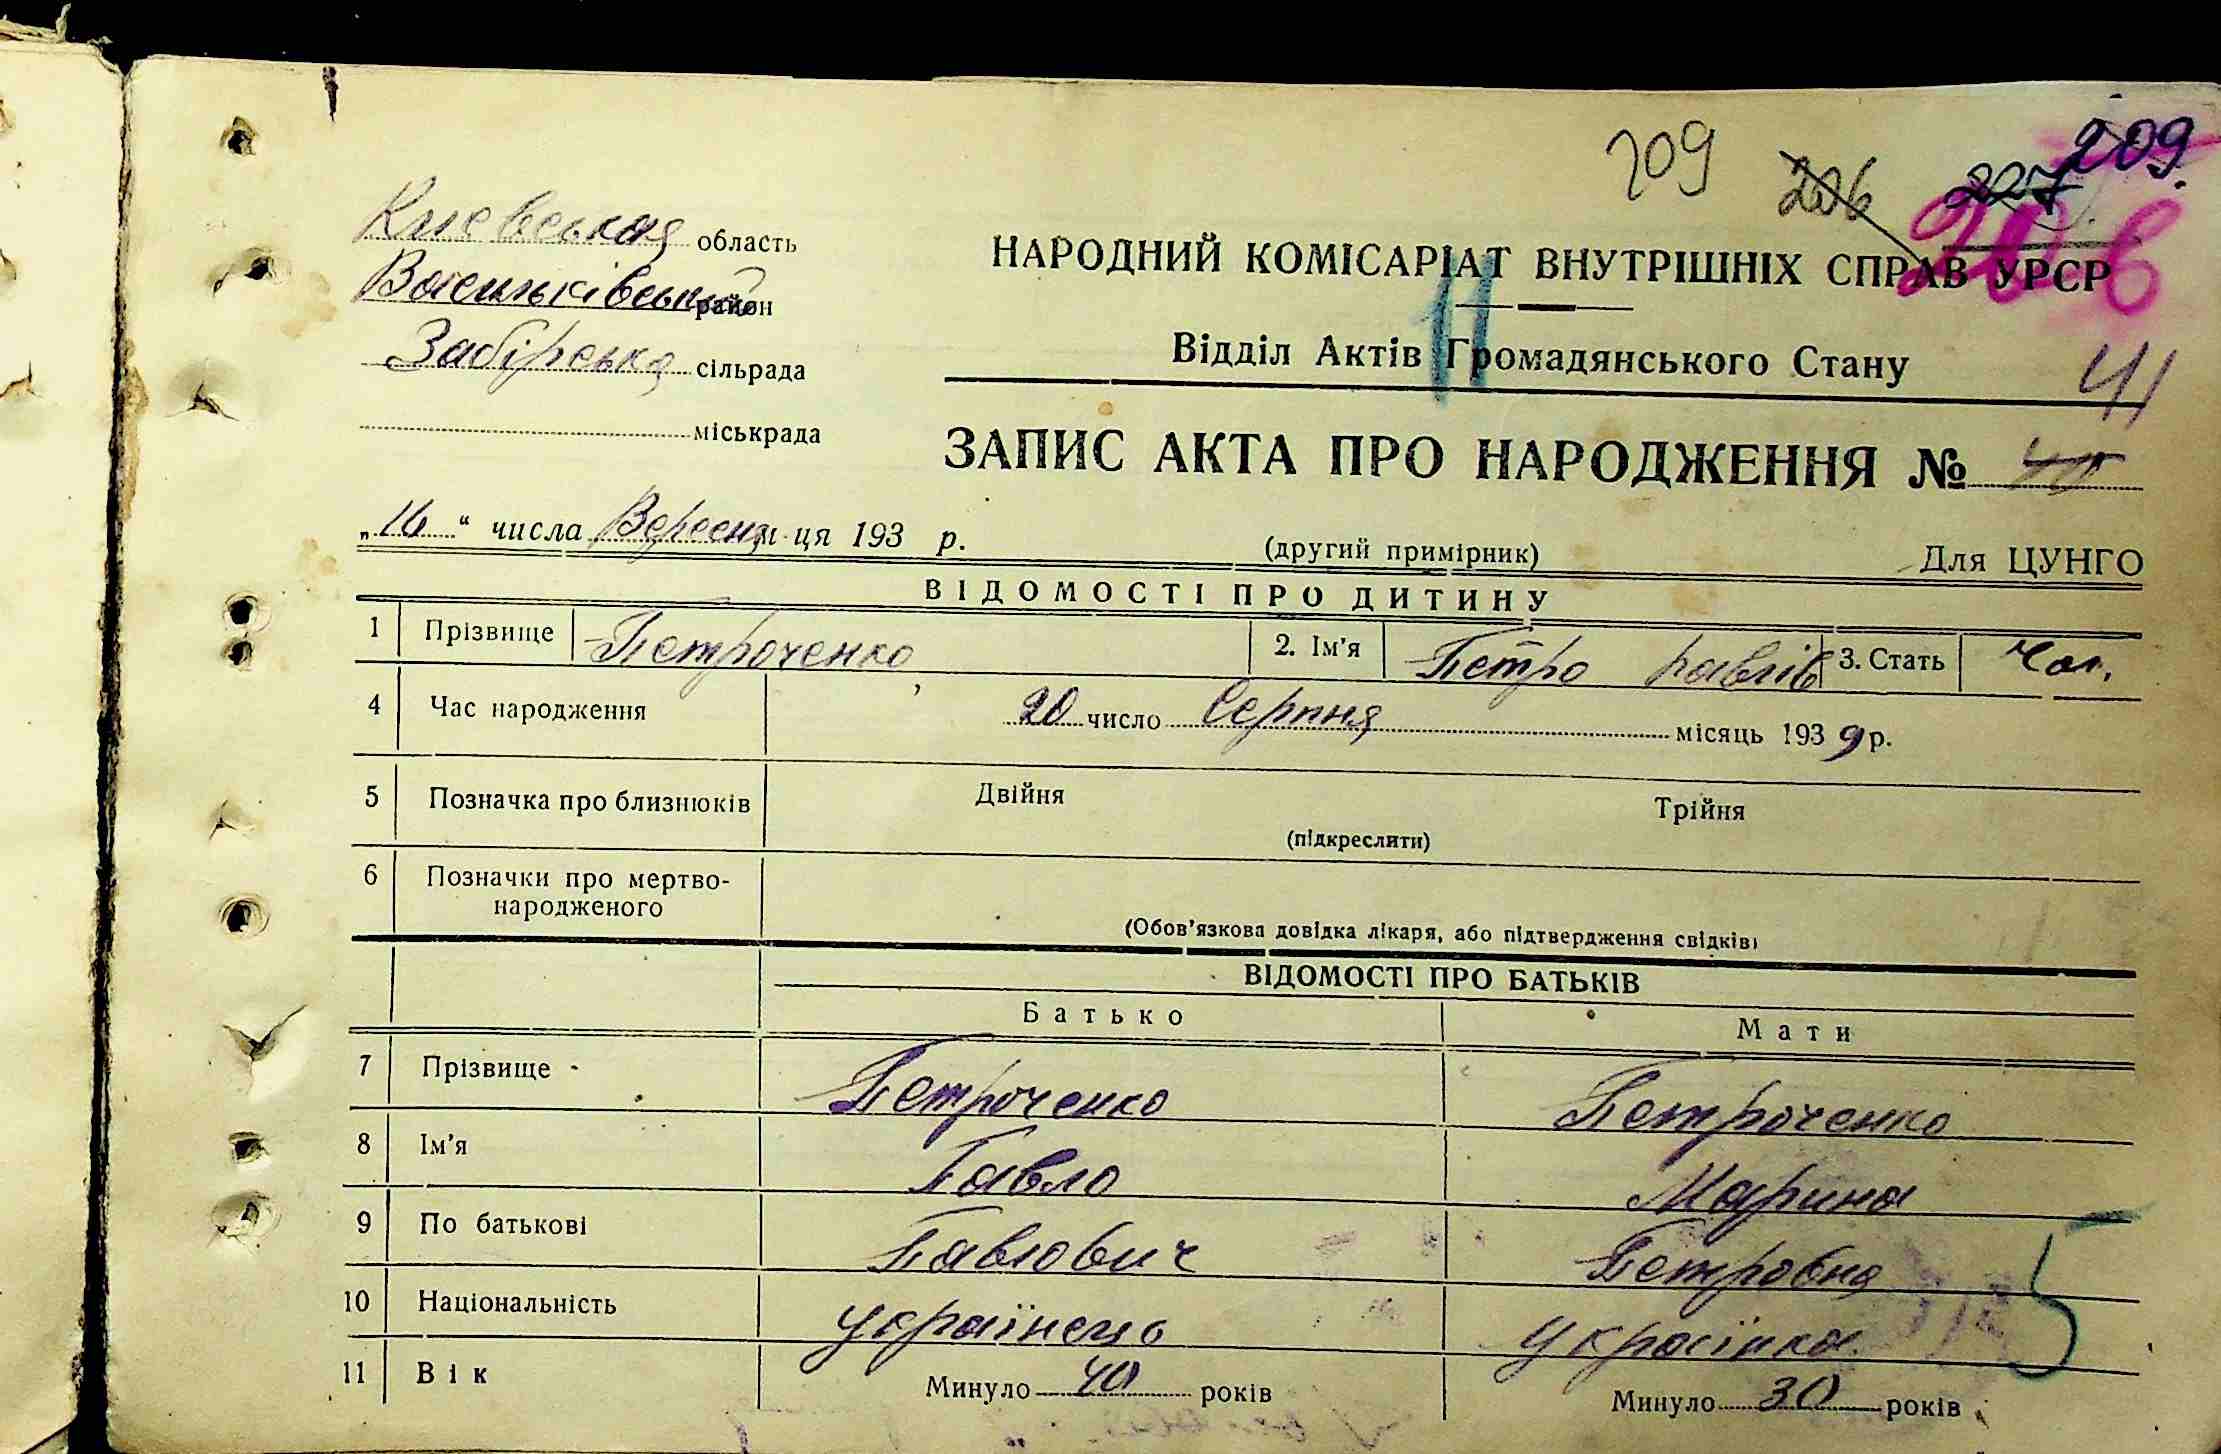 209 206 227 209
206
Киевськая область
НАРОДНИЙ КОМІСАРІАТ ВНУТРІШНІХ СПРАВ УРСР
Васильківський район
11
Забірська сільрада
Відділ Актів Громадянського Стану
41
міськрада
ЗАПИС АКТА ПРО НАРОДЖЕННЯ №
„16“ числа Вересня м-ця 193 р.
(другий примірник) Для ЦУНГО
ВІДОМОСТІ ПРО ДИТИНУ
1 Прізвище Петроченко 2. Ім'я Петро Павлів 3. Стать Чол.
4 Час народження 20 число Серпня місяць 1939 р.
5 Позначка про близнюків Двійня Трійня
(підкреслити)
6 Позначки про мертво-
народженого
(Обов'язкова довідка лікаря, або підтвердження свідків)
ВІДОМОСТІ ПРО БАТЬКІВ
Батько Мати
7 Прізвище Петроченко Петроченко
8 Ім'я Павло Марина
9 По батькові Павлович Петровна
5
10 Національність українець українка
11 Вік Минуло 40 років Минуло 30 років